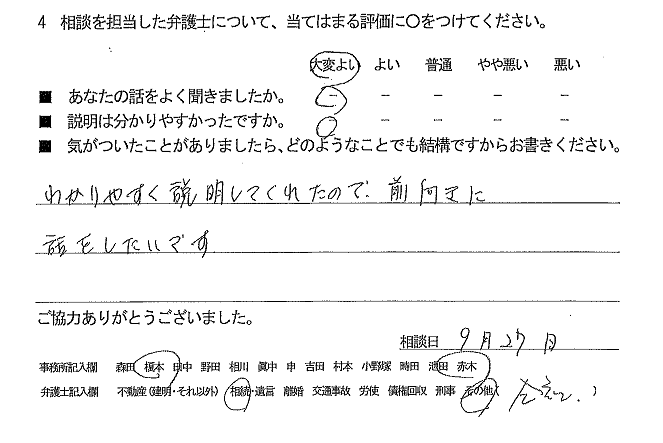 4 相談を担当した弁護士について、当てはまる評価に〇をつけてください。
大変よい よい 普通 やや悪い 悪い
■ あなたの話をよく聞きましたか。 － － － － －
■ 説明は分かりやすかったですか。 － － － －
■ 気がついたことがありましたら、どのようなことでも結構ですからお書きください。
わかりやすく説明してくれたので、前向きに
話をしたいです
ご協力ありがとうございました。
相談日 9月27日
事務所記入欄 森田 榎本 田中 野田 相川 眞中 申 吉田 村本 小野塚 時田 池田 赤木
弁護士記入欄 不動産(建明・それ以外) 相続・遺言 離婚 交通事故 労使 債権回収 刑事 その他( )